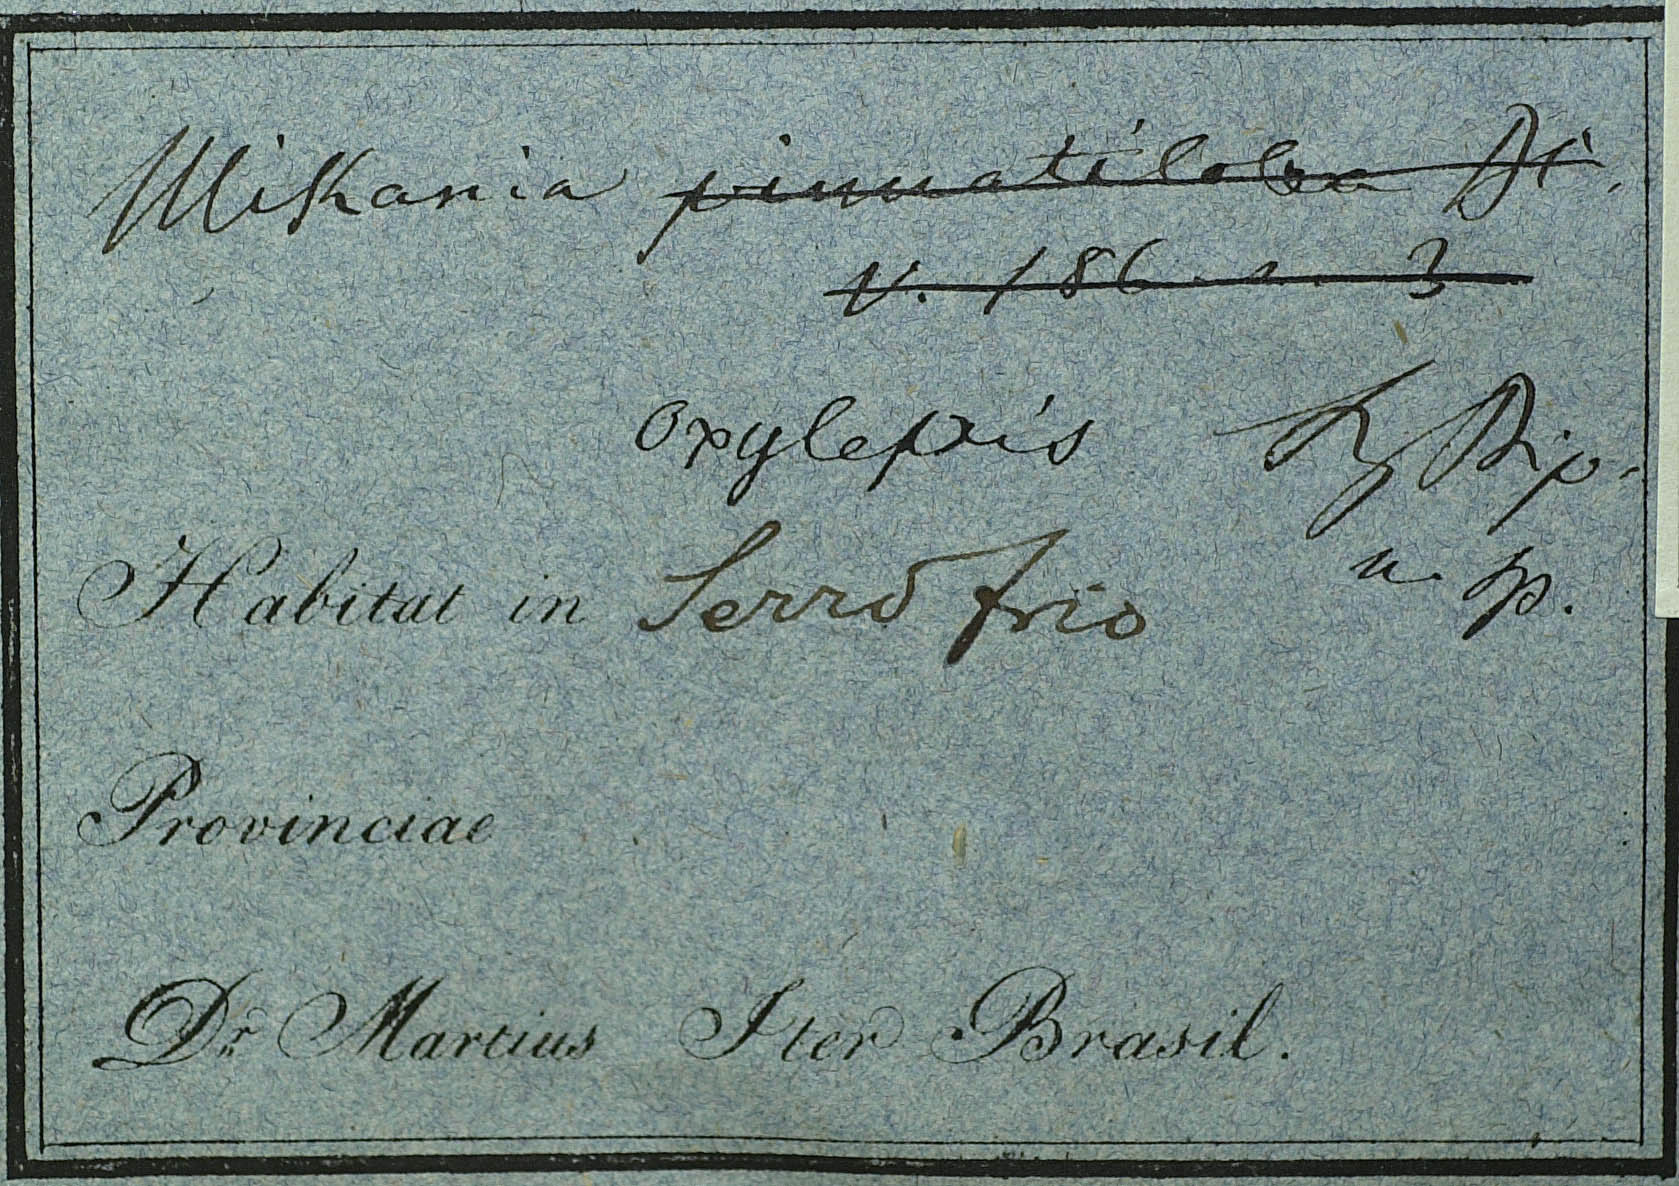 Mikania pinnatiloba DC.
V. 186 n. 3
oxylepis Sz Bip.
n. sp.
Habitat in Serro frio
Provinciae
Dr Martius Iter Brasil.